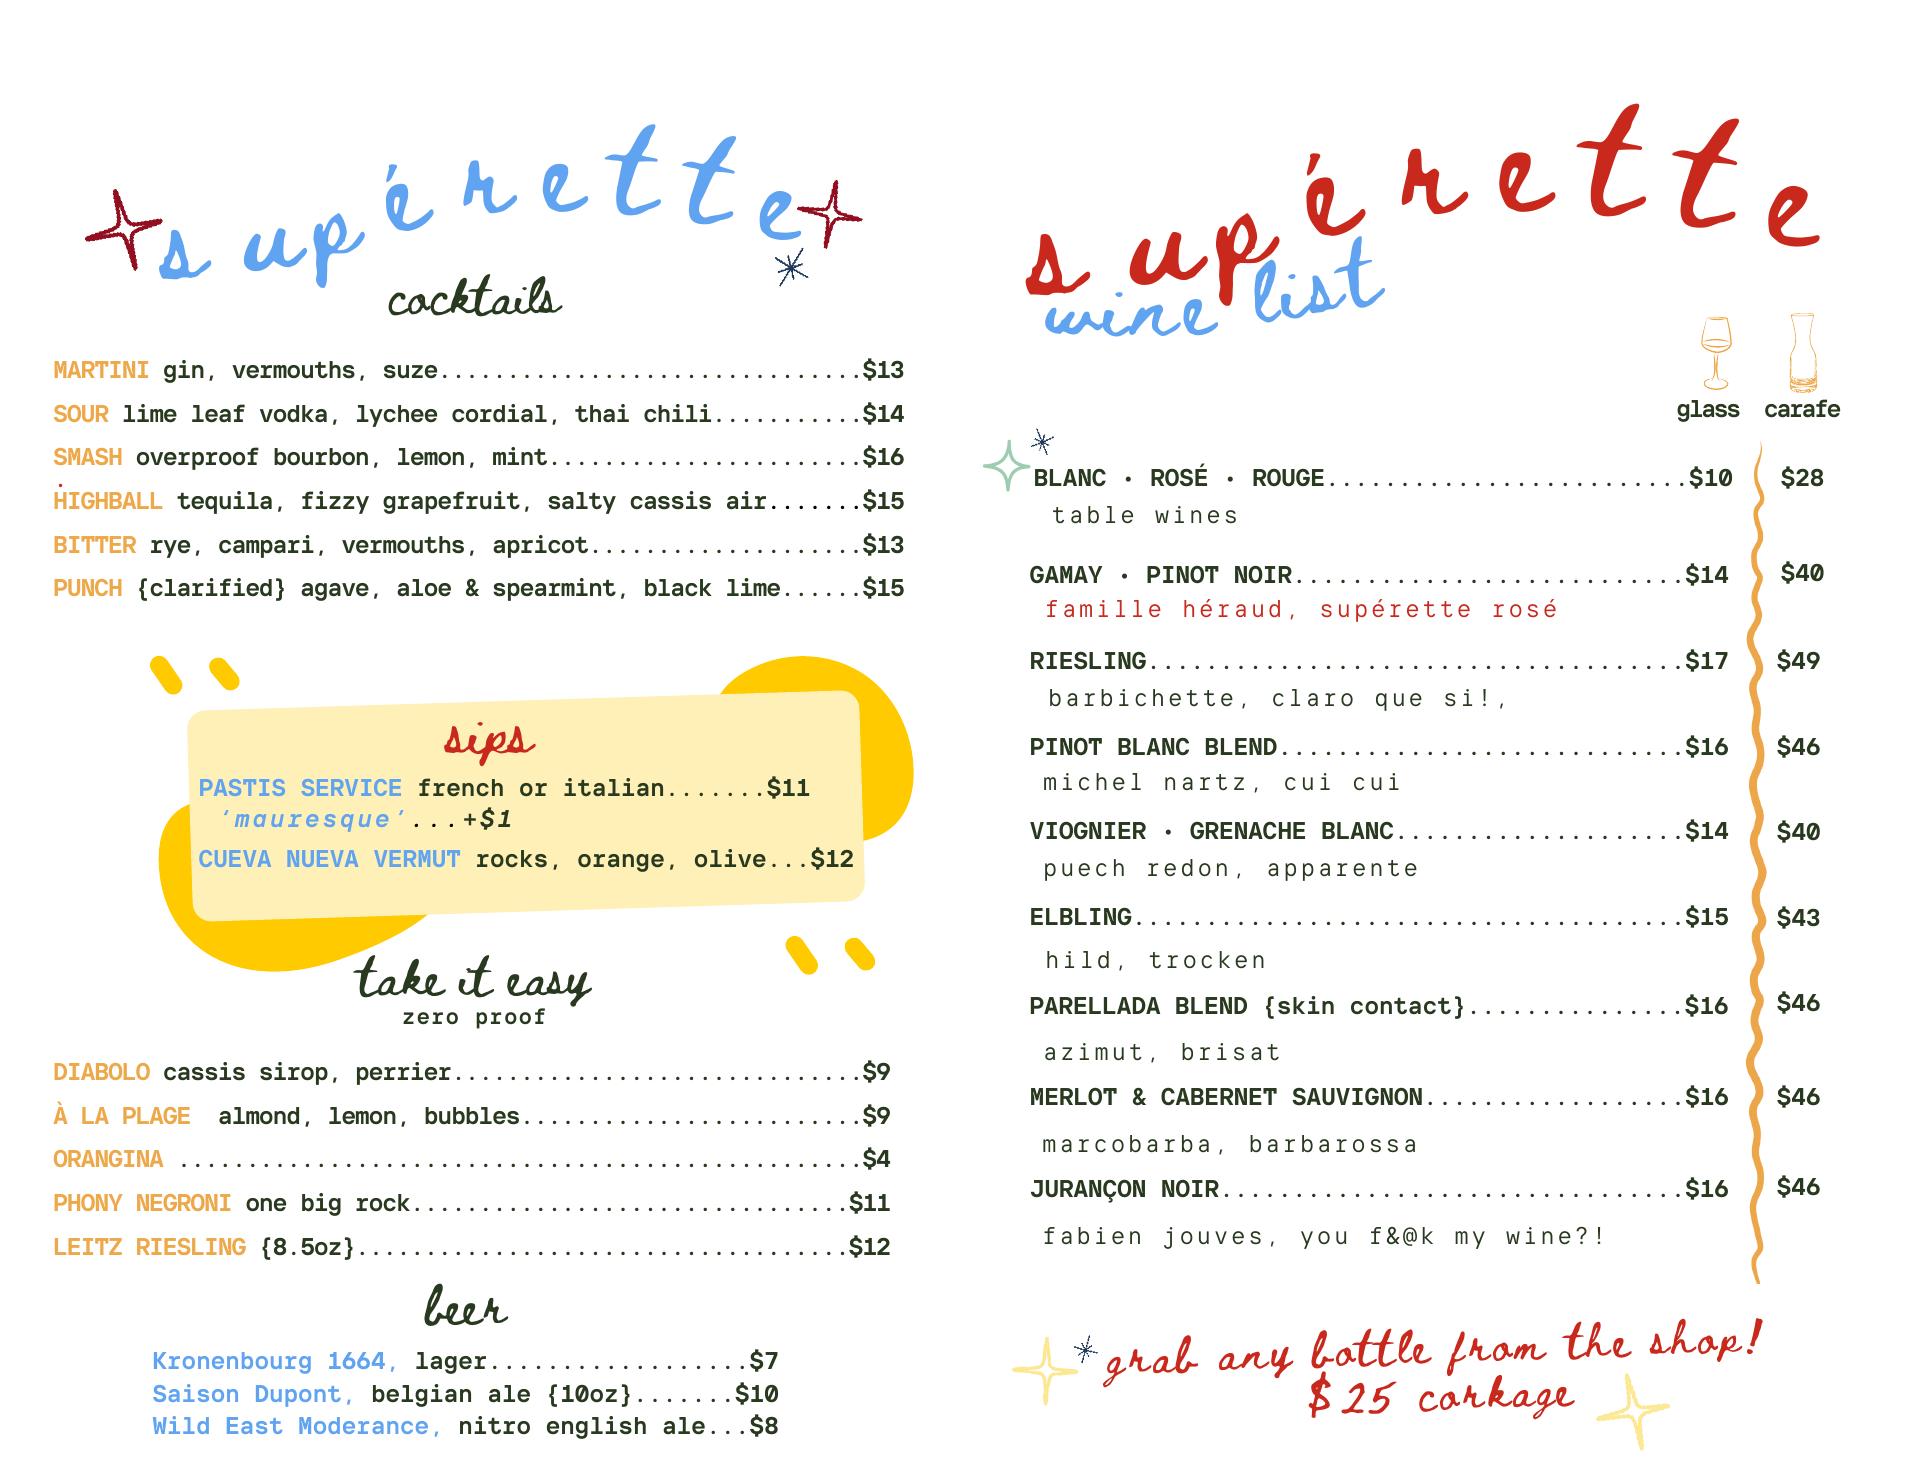 supérette
cocktails
MARTINI gin, vermouths, suze...............................$13
SOUR lime leaf vodka, lychee cordial, thai chili...........$14
SMASH overproof bourbon, lemon, mint.......................$16
HIGHBALL tequila, fizzy grapefruit, salty cassis air.......$15
BITTER rye, campari, vermouths, apricot....................$13
PUNCH {clarified} agave, aloe & spearmint, black lime......$15
sips
PASTIS SERVICE french or italian.......$11
‘mauresque’...+$1
CUEVA NUEVA VERMUT rocks, orange, olive...$12
take it easy
zero proof
DIABOLO cassis sirop, perrier..............................$9
À LA PLAGE almond, lemon, bubbles.........................$9
ORANGINA ..................................................$4
PHONY NEGRONI one big rock................................$11
LEITZ RIESLING {8.5oz}....................................$12
beer
Kronenbourg 1664, lager..................$7
Saison Dupont, belgian ale {10oz}.......$10
Wild East Moderance, nitro english ale...$8
supérette
wine list
glass carafe
BLANC • ROSÉ • ROUGE.........................$10 $28
table wines
GAMAY • PINOT NOIR...........................$14 $40
famille héraud, supérette rosé
RIESLING.....................................$17 $49
barbichette, claro que si!,
PINOT BLANC BLEND............................$16 $46
michel nartz, cui cui
VIOGNIER • GRENACHE BLANC....................$14 $40
puech redon, apparente
ELBLING......................................$15 $43
hild, trocken
PARELLADA BLEND {skin contact}...............$16 $46
azimut, brisat
MERLOT & CABERNET SAUVIGNON..................$16 $46
marcobarba, barbarossa
JURANÇON NOIR................................$16 $46
fabien jouves, you f&@k my wine?!
grab any bottle from the shop!
$25 corkage